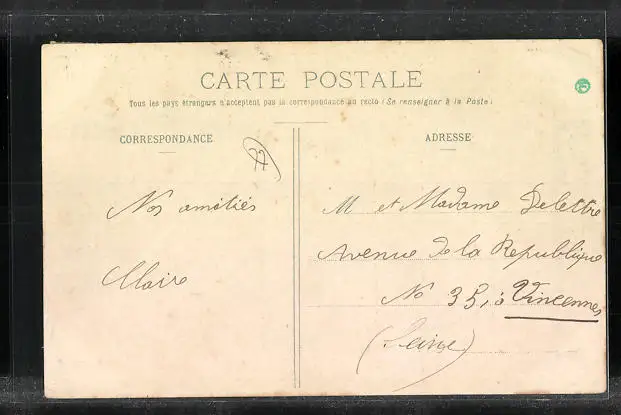 CARTE POSTALE
Tous les pays étrangers n'acceptent pas la correspondance au recto (Se renseigner à la Poste)
CORRESPONDANCE
77
Nos amitiés
Claire
ADRESSE
M et Madame Delettre
Avenue de la République
No 35, à Vincennes
(Seine)